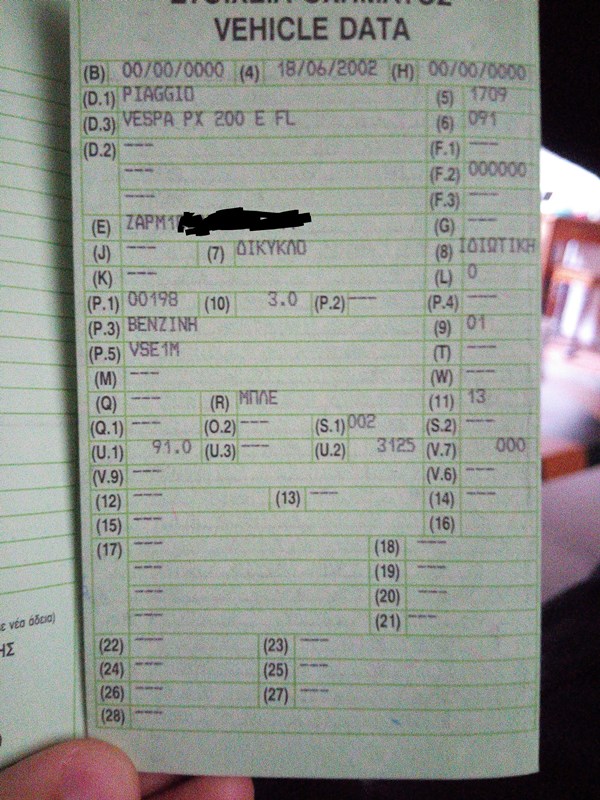 ΣΤΟΙΧΕΙΑ ΟΧΗΜΑΤΟΣ
VEHICLE DATA
(B) 00/00/0000 (4) 18/06/2002 (H) 00/00/0000
(D.1) PIAGGIO (5) 1709
(D.3) VESPA PX 200 E FL (6) 091
(D.2) --- (F.1) ---
--- (F.2) 000000
--- (F.3) ---
(E) ZAPM1 (G) ---
(J) --- (7) ΔΙΚΥΚΛΟ (8) ΙΔΙΩΤΙΚΗ
(K) --- (L) 0
(P.1) 00198 (10) 3.0 (P.2) --- (P.4) ---
(P.3) ΒΕΝΖΙΝΗ (9) 01
(P.5) VSE1M (T) ---
(M) --- (W) ---
(Q) --- (R) ΜΠΛΕ (11) 13
(Q.1) --- (O.2) --- (S.1) 002 (S.2) ---
(U.1) 91.0 (U.3) --- (U.2) 3125 (V.7) 000
(V.9) --- (V.6) ---
(12) --- (13) --- (14) ---
(15) --- (16)
(17) --- (18) ---
--- (19) ---
--- (20) ---
--- (21) ---
(22) --- (23) ---
(24) --- (25) ---
(26) --- (27) ---
(28) ---
ε νέα άδεια)
ΗΣ